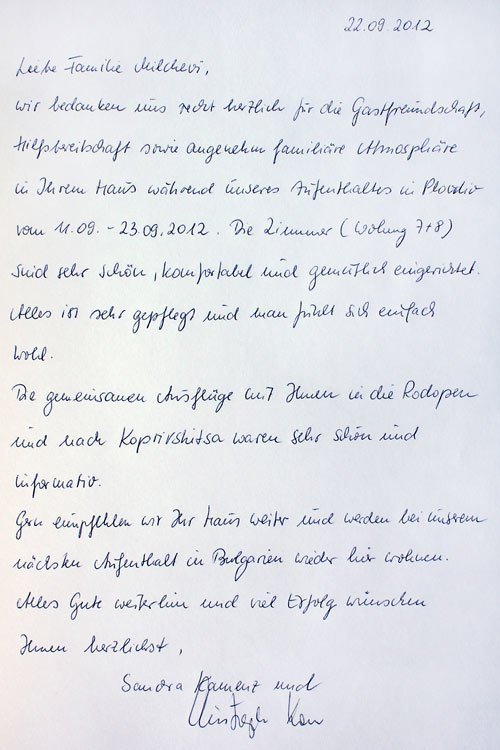 22.09.2012
Liebe Familie Milchevi,
wir bedanken uns recht herzlich für die Gastfreundschaft,
Hilfsbereitschaft sowie angenehm familiäre Atmosphäre
in Ihrem Haus während unseres Aufenthaltes in Plovdiv
vom 11.09. - 23.09.2012. Die Zimmer (Wohnung 7+8)
sind sehr schön, komfortabel und gemütlich eingerichtet.
Alles ist sehr gepflegt und man fühlt sich einfach
wohl.
Die gemeinsamen Ausflüge mit Ihnen in die Rodopen
und nach Koprivshitsa waren sehr schön und
informativ.
Gern empfehlen wir Ihr Haus weiter und werden bei unserem
nächsten Aufenthalt in Bulgarien wieder hier wohnen.
Alles Gute weiterhin und viel Erfolg wünschen
Ihnen herzlichst,
Sandra Kamenz und